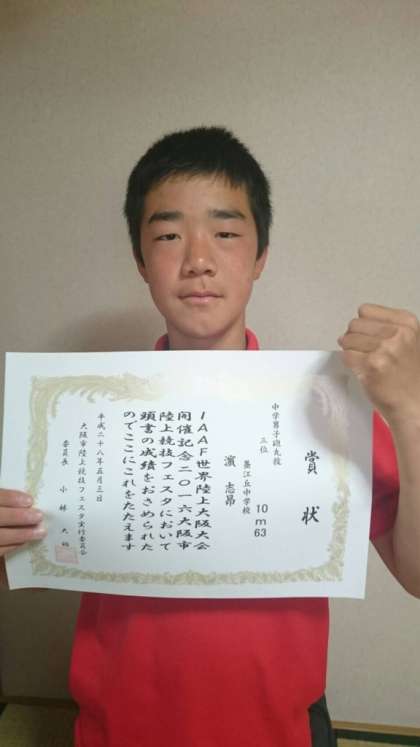 賞状
中学男子砲丸投
三位
10m63
墨江丘中学校
濵 志昂
IAAF世界陸上大阪大会
開催記念二〇一六大阪市
陸上競技フェスタにおいて
頭書の成績をおさめられた
のでここにこれをたたえます
平成二十八年五月三日
大阪市陸上競技フェスタ実行委員会
委員長 小林